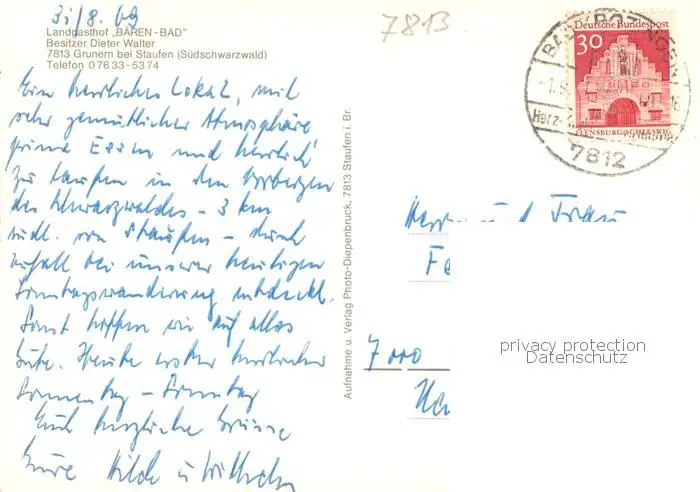 31/8. 69
Landgasthof „BÄREN-BAD"
Besitzer Dieter Walter
7813 Grunern bei Staufen (Südschwarzwald)
Telefon 0 76 33 - 53 74
Ein herrliches Lokal, mit
sehr gemütlicher Atmosphäre
prima Essen und herrlich
zu laufen in den Vorbergen
des Schwarzwaldes - 3 km
südl. von Staufen - durch
Zufall bei unserer heutigen
Sonntagswanderung entdeckt.
Sonst hoffen wir auf alles
Gute. Heute erster herrlicher
Sonnentag - Sonntag
Euch herzliche Grüsse
Eure Hilde u Wilhelm
Aufnahme u. Verlag Photo-Diepenbruck, 7813 Staufen i. Br.
7813
Deutsche Bundespost
30
FLENSBURG/SCHLESWIG
BAD KROZINGEN
Herz-
7812
Herrn und Frau
Fe
7000
privacy protection
Datenschutz